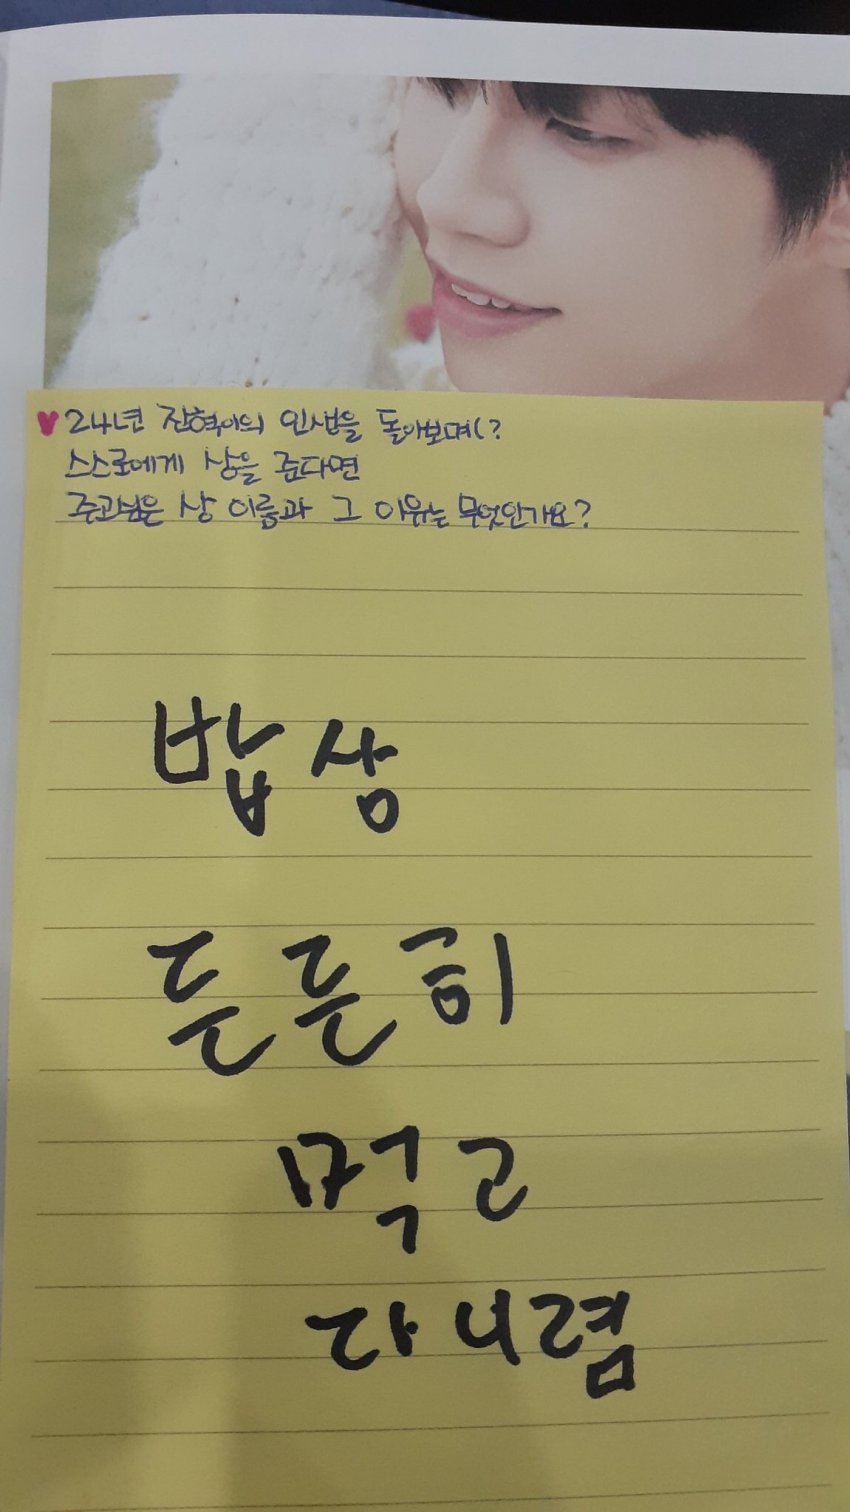 ♥ 24년 진혁이의 인생을 돌아보며(?
스스로에게 상을 준다면
주고싶은 상 이름과 그 이유는 무엇인가요?
밥상
든든히
먹고
다니렴